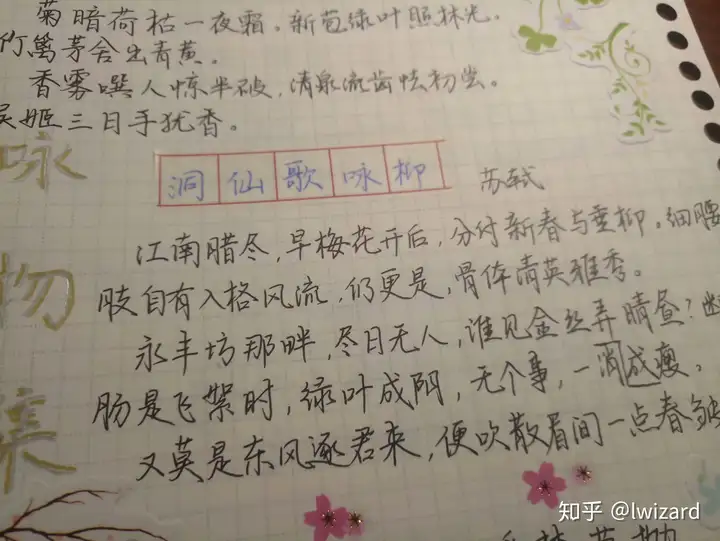 菊暗荷枯一夜霜。新苞绿叶照林光。
竹篱茅舍出青黄。
香雾噀人惊半破,清泉流齿怯初尝。
吴姬三日手犹香。
咏物集
洞仙歌咏柳
苏轼
江南腊尽,早梅花开后,分付新春与垂柳。细腰
肢自有入格风流,仍更是,骨体清英雅秀。
永丰坊那畔,尽日无人,谁见金丝弄晴昼?
肠是飞絮时,绿叶成阴,无个事,一消成瘦,
又莫是东风逐君来,便吹散眉间一点春皱
知乎 @lwizard